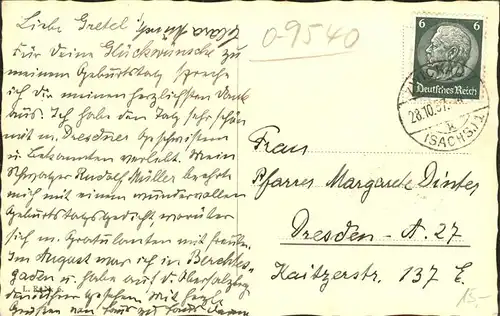 Liebe Gretel
Für Deine Glückwünsche zu
meinem Geburtstag spreche
ich Dir meinen herzlichsten Dank
aus. Ich habe den Tag sehr schön
mit m. Dresdner Geschwistern
u. Bekannten verlebt. Mein
Schwager Rudolf Müller beehrte
mich mit einem wundervollen
Geburtstagsgedicht, worüber
sich m. Gratulanten mit freuten.
Im August war ich in Berchtes-
gaden u. habe auf d. Obersalzberg
gesehen. Mit herzl.
Grüßen von
0-9540
6
6
Deutsches Reich
28.10.37
(SACHS)
Frau
Pfarrer Margarete Dinter
Dresden - A. 27
Kaitzerstr. 137 E.
15.-